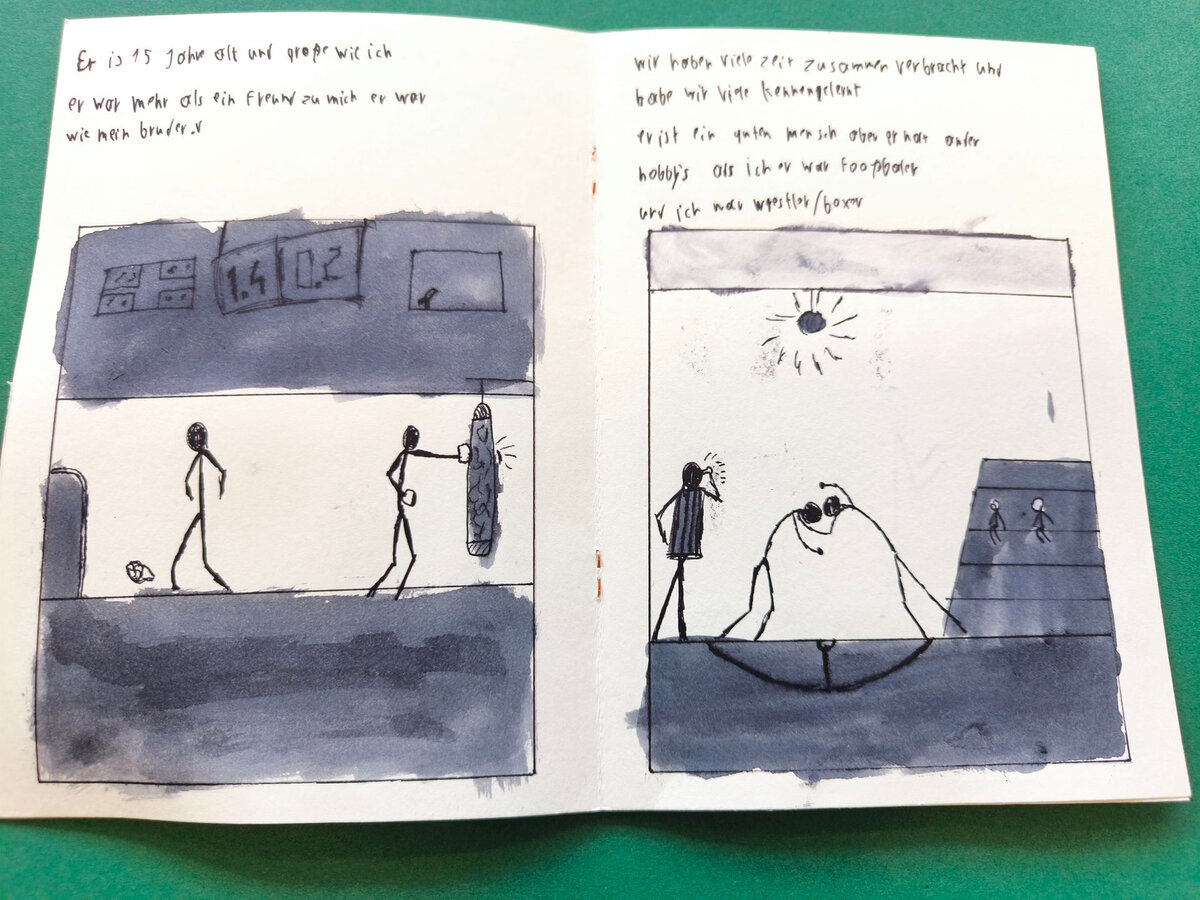 Er is 15 Jahre alt und große wie ich
er war mehr als ein Freund zu mich er war
wie mein bruder.
wir haben viele zeit zusammen verbracht und
habe wir viele kennengelernt
er ist ein guten mensch aber er hat ander
hobby's als ich er war foopbaler
und ich war wrestler/boxer
1.4 0.2